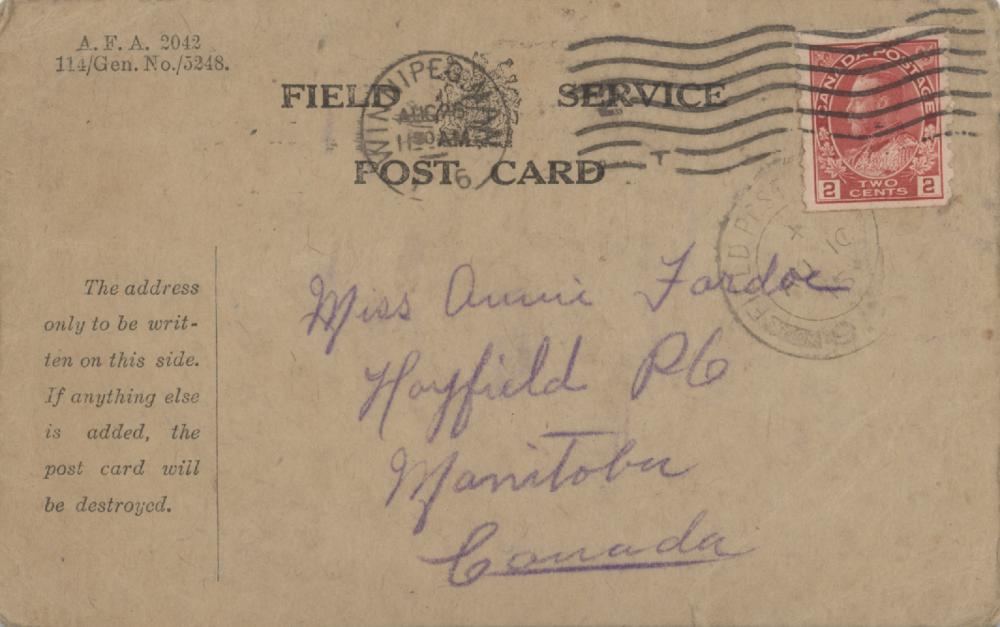 A. F. A. 2042
114/Gen. No./5248.
FIELD SERVICE
POST CARD
WINNIPEG MAN
AUG 26
11 30 AM
6
CANADA POSTAGE
2 TWO CENTS 2
FIELD POST
X
10
The address
only to be writ-
ten on this side.
If anything else
is added, the
post card will
be destroyed.
Miss Annie Fardoe
Hayfield PO
Manitoba
Canada